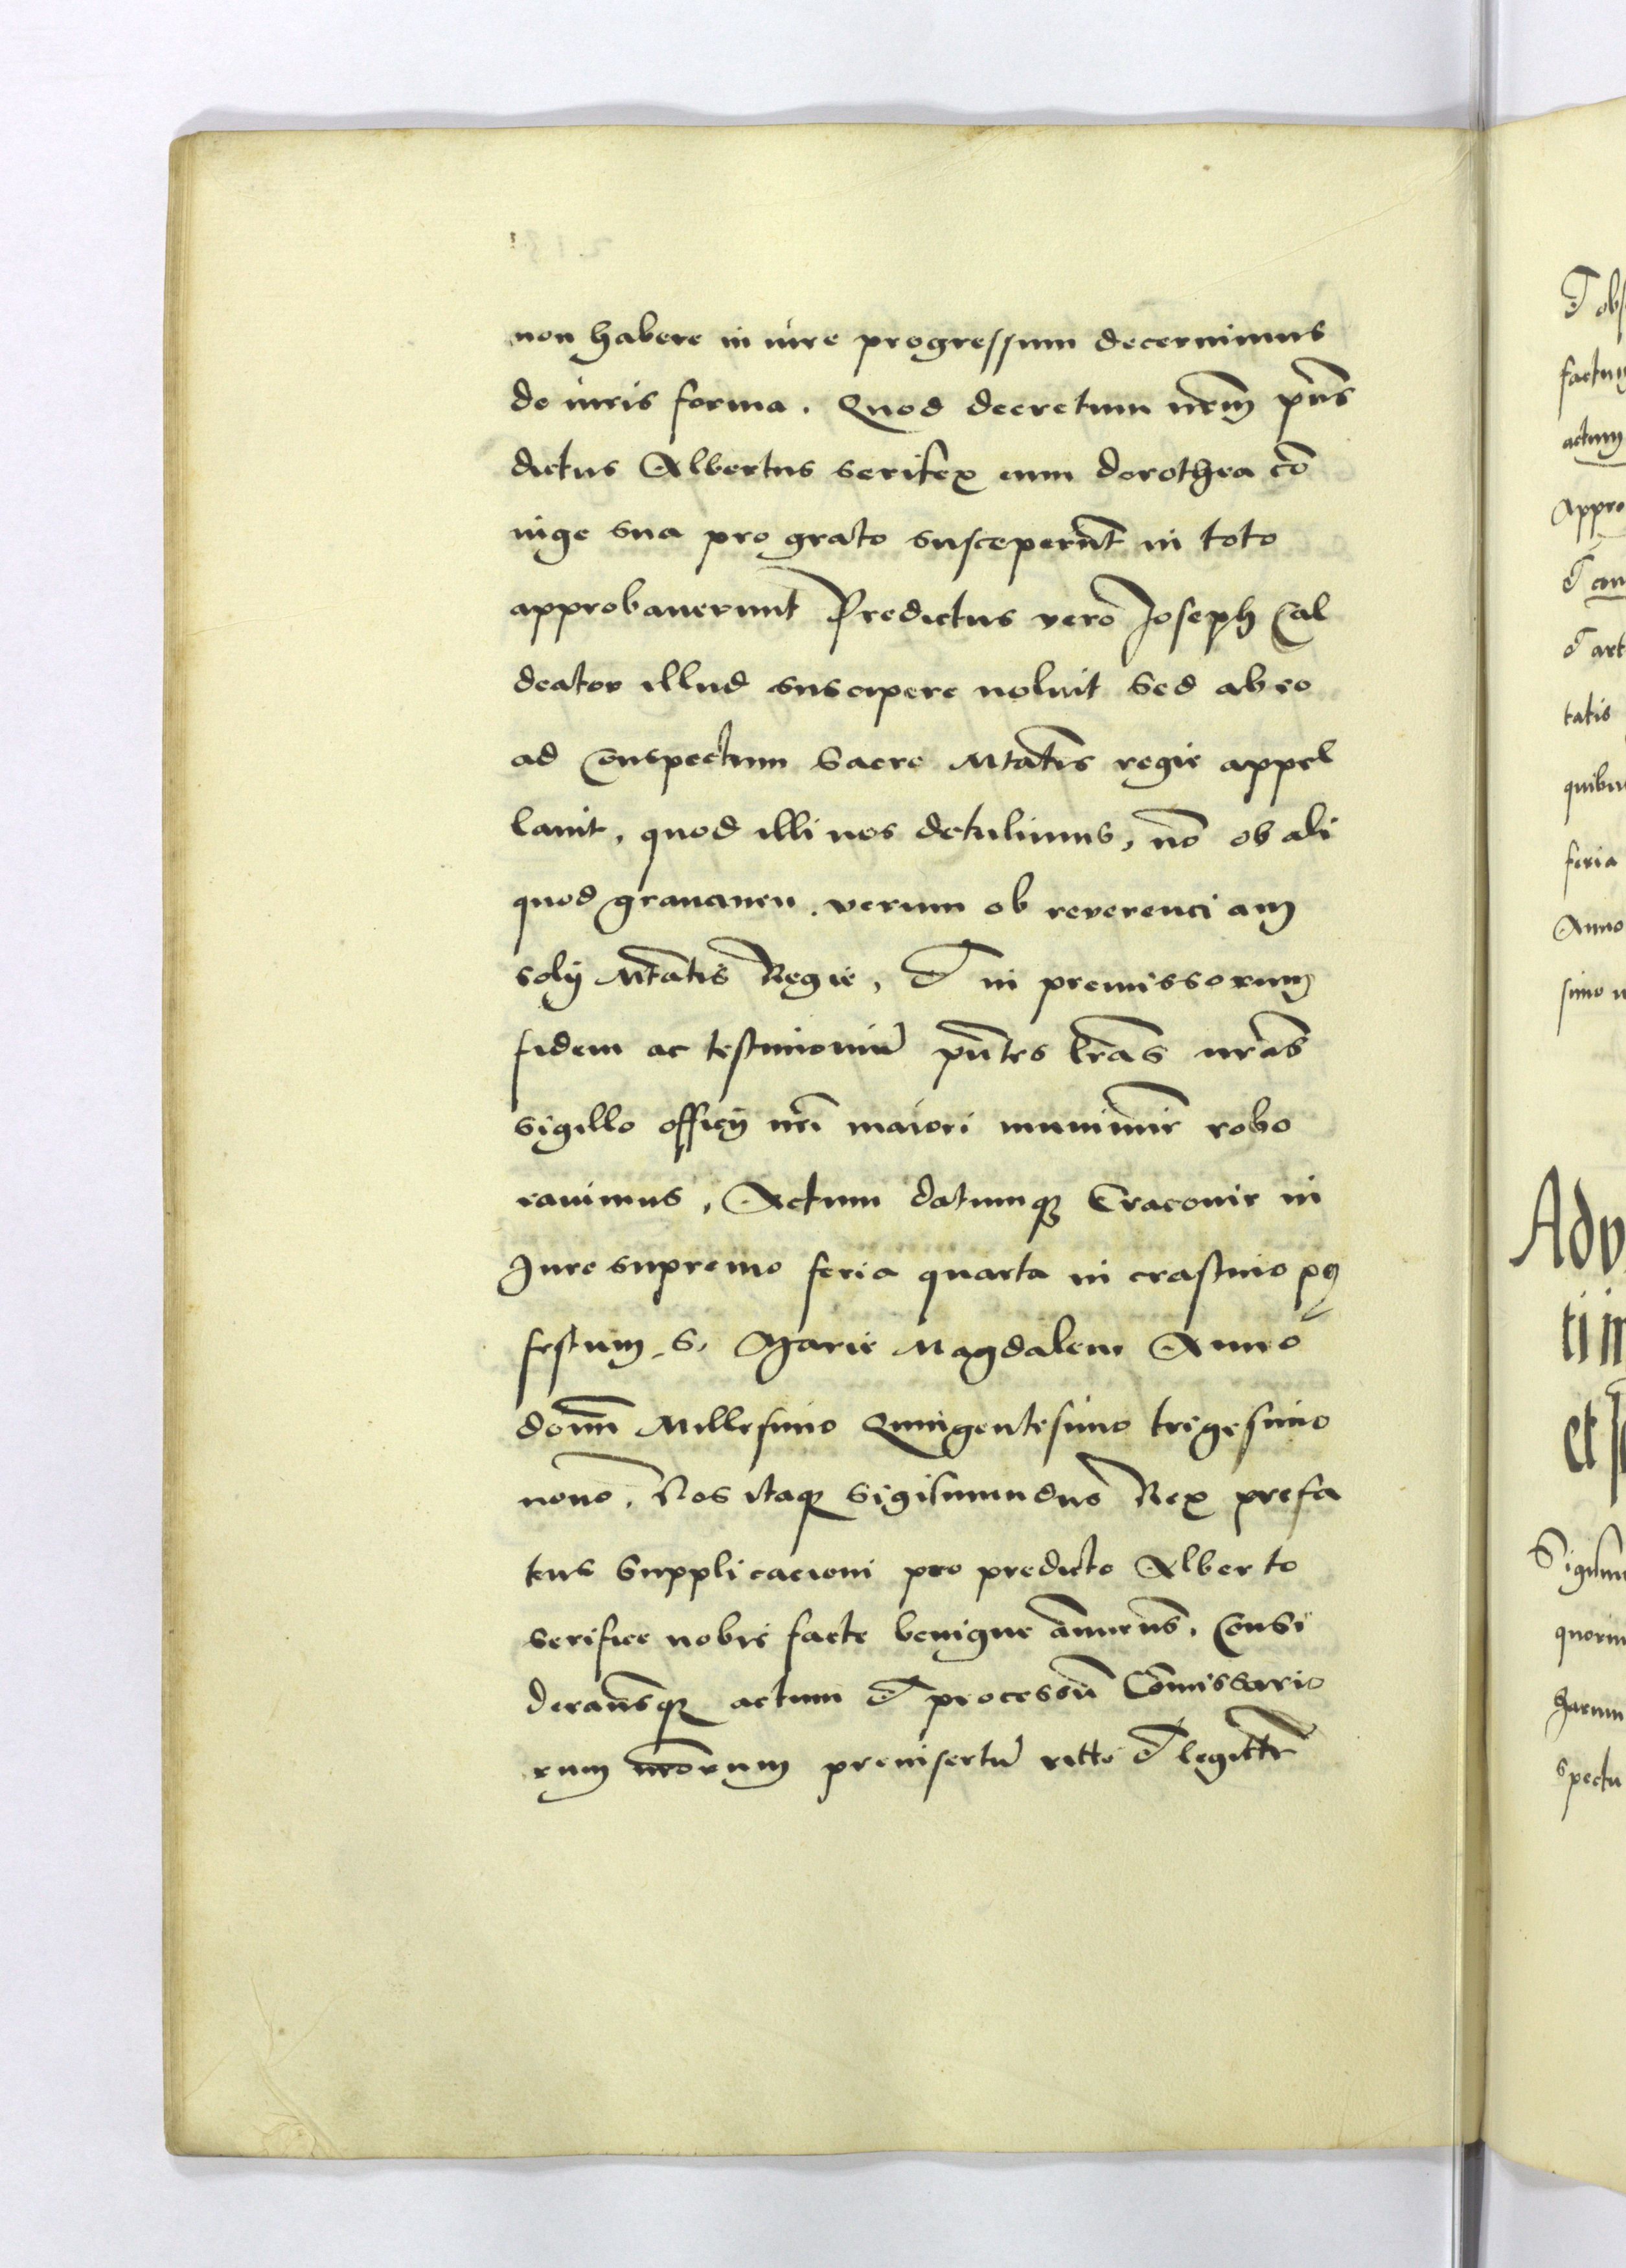 non habere in iure progressum decernimus
de iuris forma. Quod decretum nr̃m p̃ns
dictus Albertus serifex cum dorothea cõ
iuge sua pro grato susceperũt in toto
approbauerunt Predictus vero Joseph Cal
deator illud suscipere noluit Sed ab eo
ad Conspectum Sacre Mtatis regie appel
lauit, quod illi nos detulimus, nõ ob ali
quod grauamen, verum ob reverenciam
solij Mtatis Regie, Et in premissorum
fidem ac testimoniũ pñtes lr̃as nr̃as
sigillo officij nr̃i maiori munimine robo
rauimus, Actum datumqȝ Cracovie in
Jure supremo feria quarta in crastino
festum S. Marie Magdalene Anno
domĩ Millesimo Quingentesimo trigesimo
nono, Nos itaqȝ Sigismundus Rex prefa
tus Supplicacioni pro predicto Alberto
serifice nobis facte benigne ãnuens, Consi
deransqȝ actum Et processũ Comissario
rum nr̃orum preinsertũ ritte Et legittĩe
Et
factum
actum
Appro
Et con
Et art
tatis
quibu
feria
Anno
simo
Adv
et
Sigism
quorum
harum
spectu